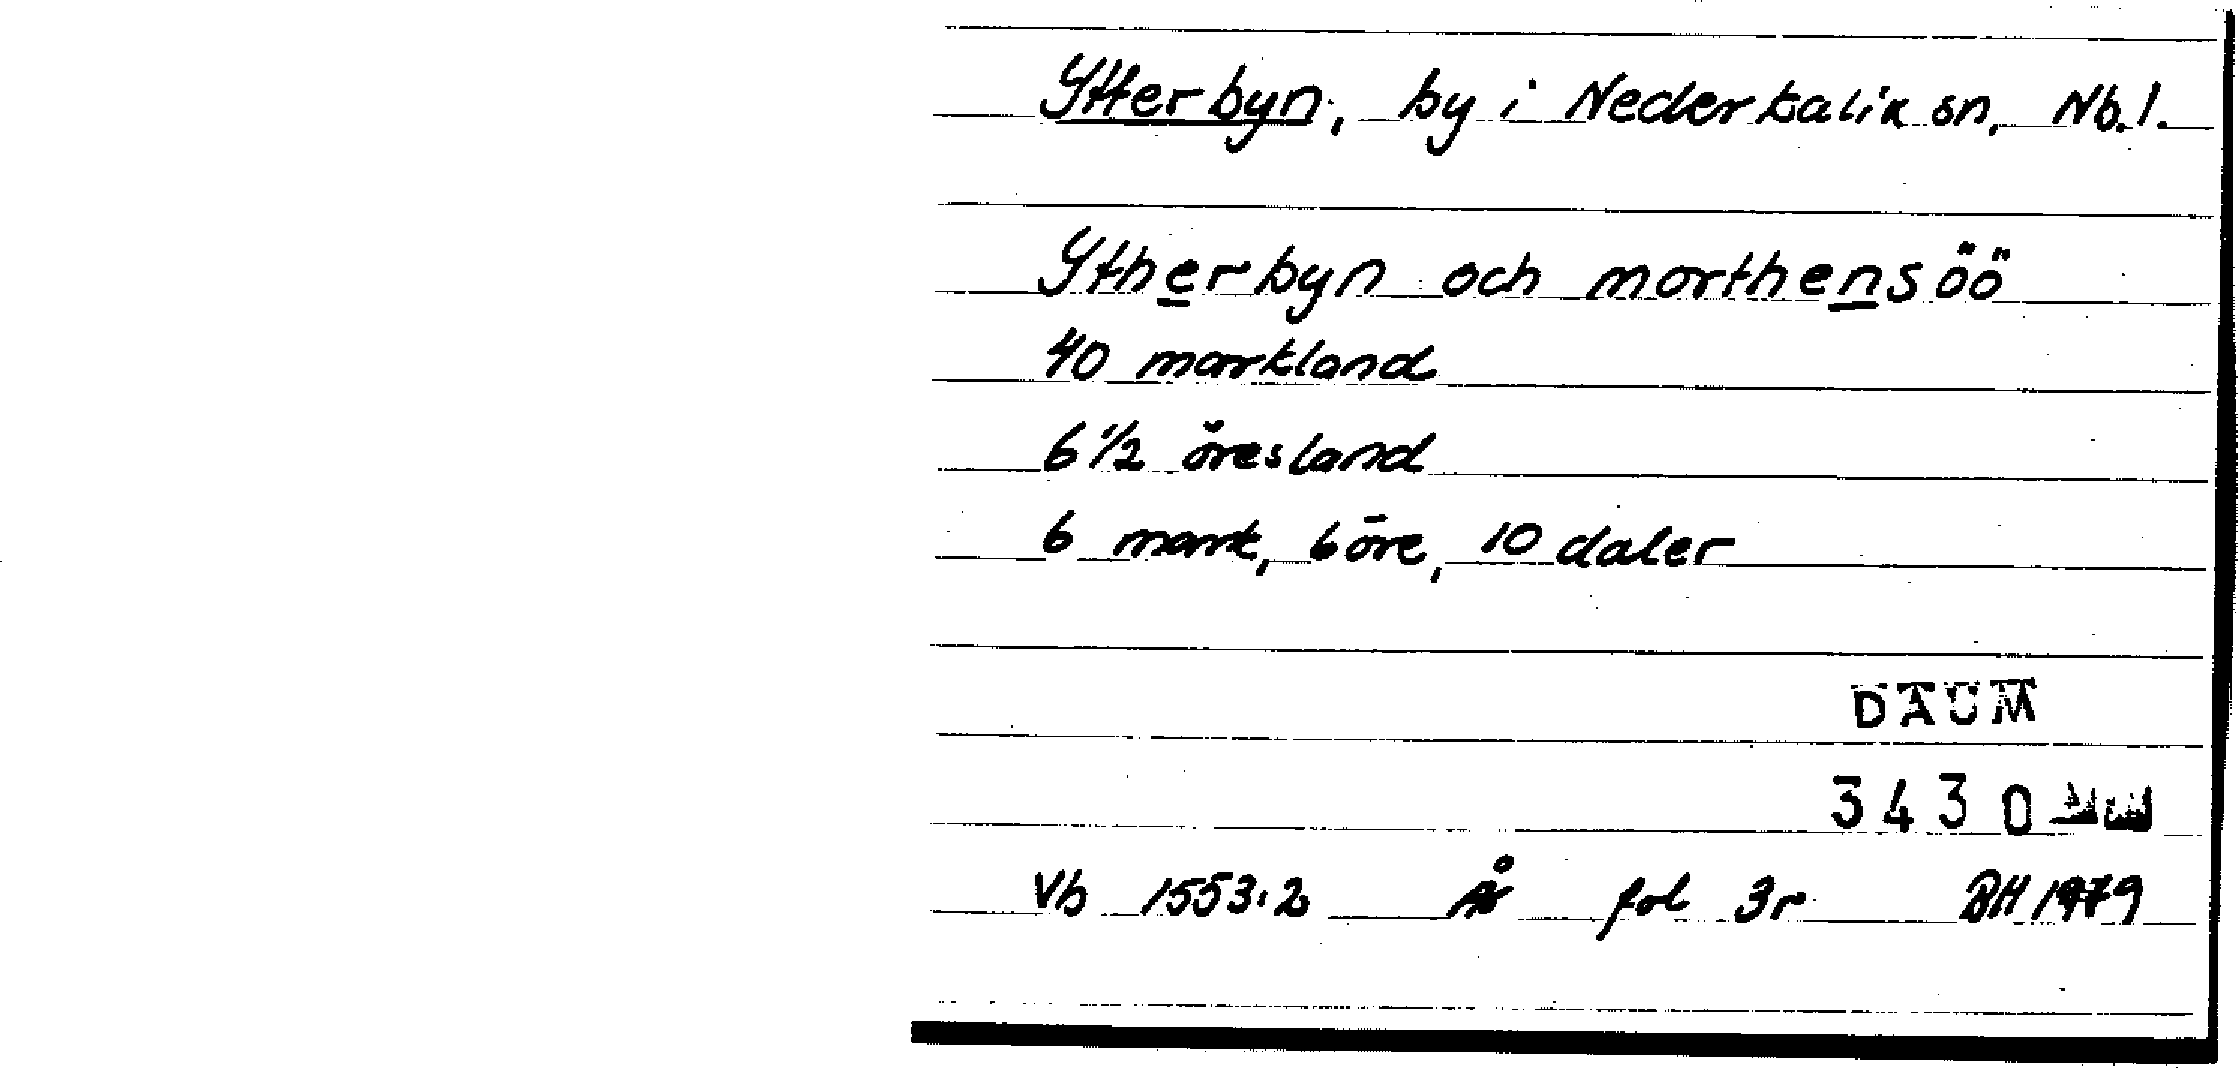 Ytterbyn, by i Nederkalix sn, Nb.l.
Ytherbyn och morthensöö
40 markland
6 1/2 öresland
6 mark, 6 öre, 10 daler
DAUM
3430
Vb 1553:2 År fol 3r BH 1979